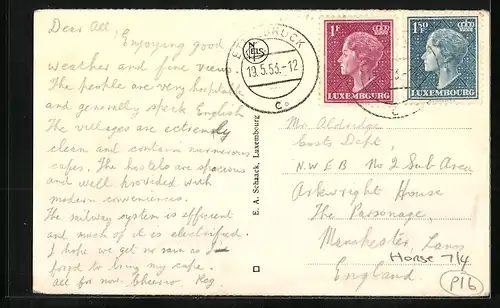 Dear All,
Enjoying good
weather and fine views.
The people are very hospitable
and generally speak English
The villages are extremely
clean and contain numerous
cafes. The hostels are spacious
and well provided with
modern conveniences.
The railway system is efficient
and much of it is electrified.
I hope we get no rain as I
forgot to bring my cape.
All for now. Cheerio Reg.
E. A. Schaack, Luxembourg
ETTELBRUCK
NELS
19.5.53.-12
c
1F
LUXEMBOURG
1F50
LUXEMBOURG
Mr Aldridge
Costs Dept,
N.W.E.B No 2 Sub Area
Arkwright House
The Parsonage
Manchester, Lancs
England
Horse 7/4
P16